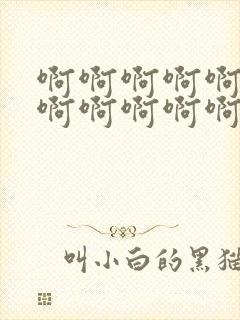 啊啊啊啊啊
啊啊啊啊啊
叫小白的黑猫